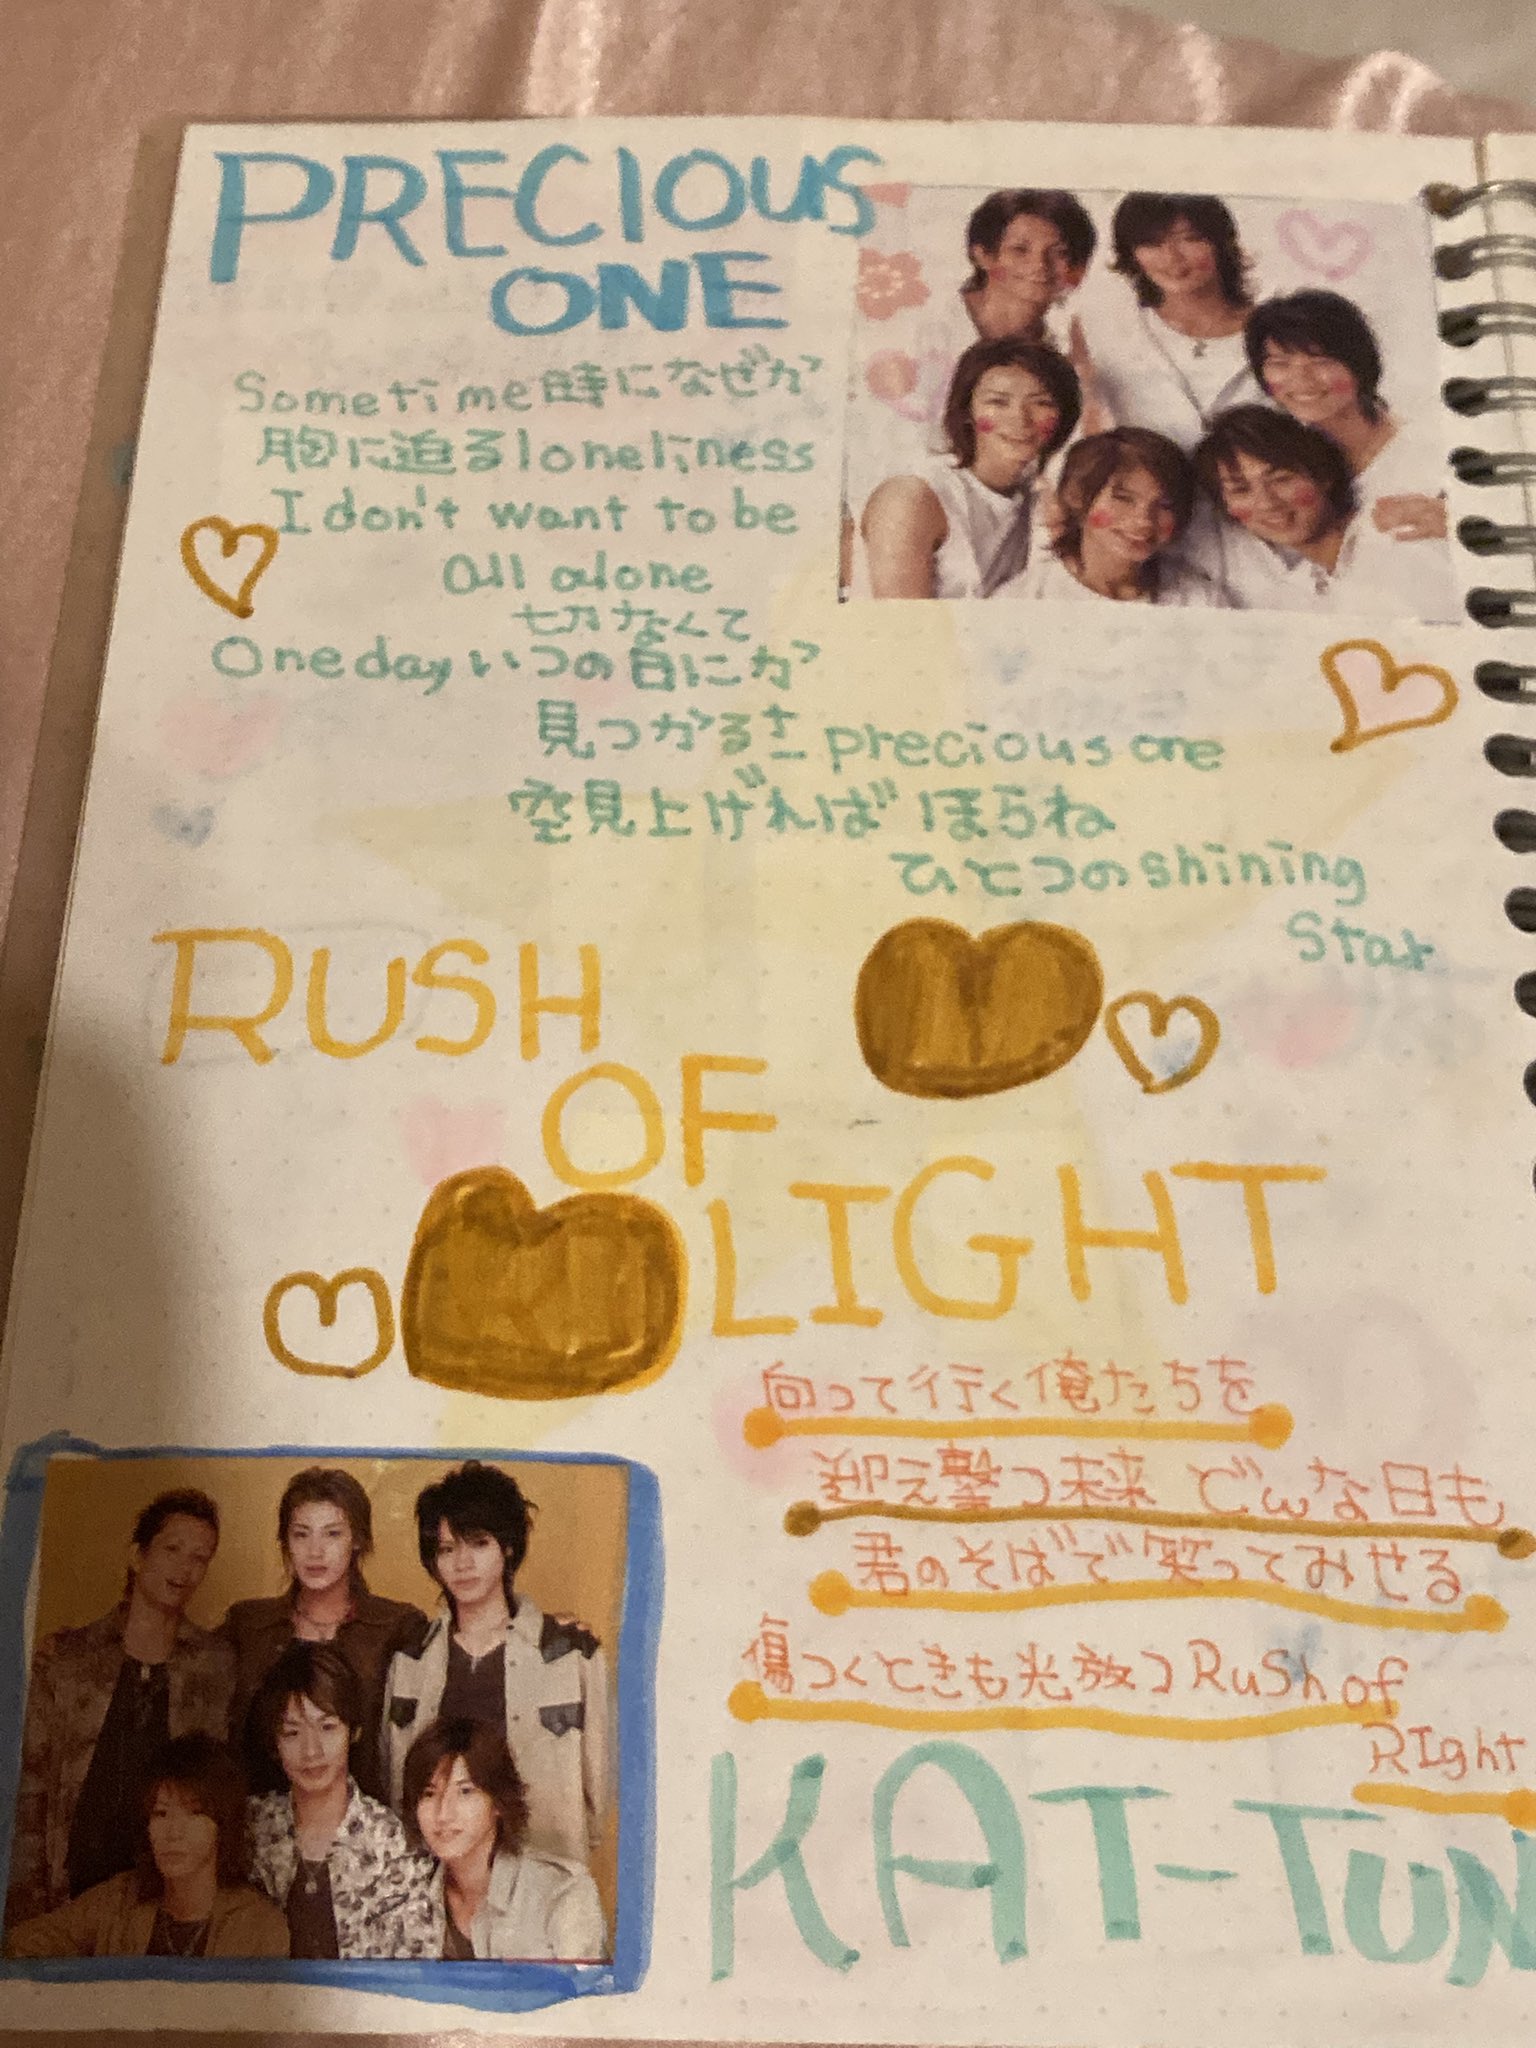 PRECIOUS
ONE
Sometime時になぜか
胸に迫るloneliness
I don't want to be
all alone
切なくて
Onedayいつの日にか
見つかるさprecious one
空見上げれば ほらね
ひとつのshining
Star
RUSH
OF
LIGHT
向って行く俺たちを
迎え撃つ未来 どんな日も
君のそばで笑ってみせる
傷つくときも光放つRush of
RIght
KAT-TUN